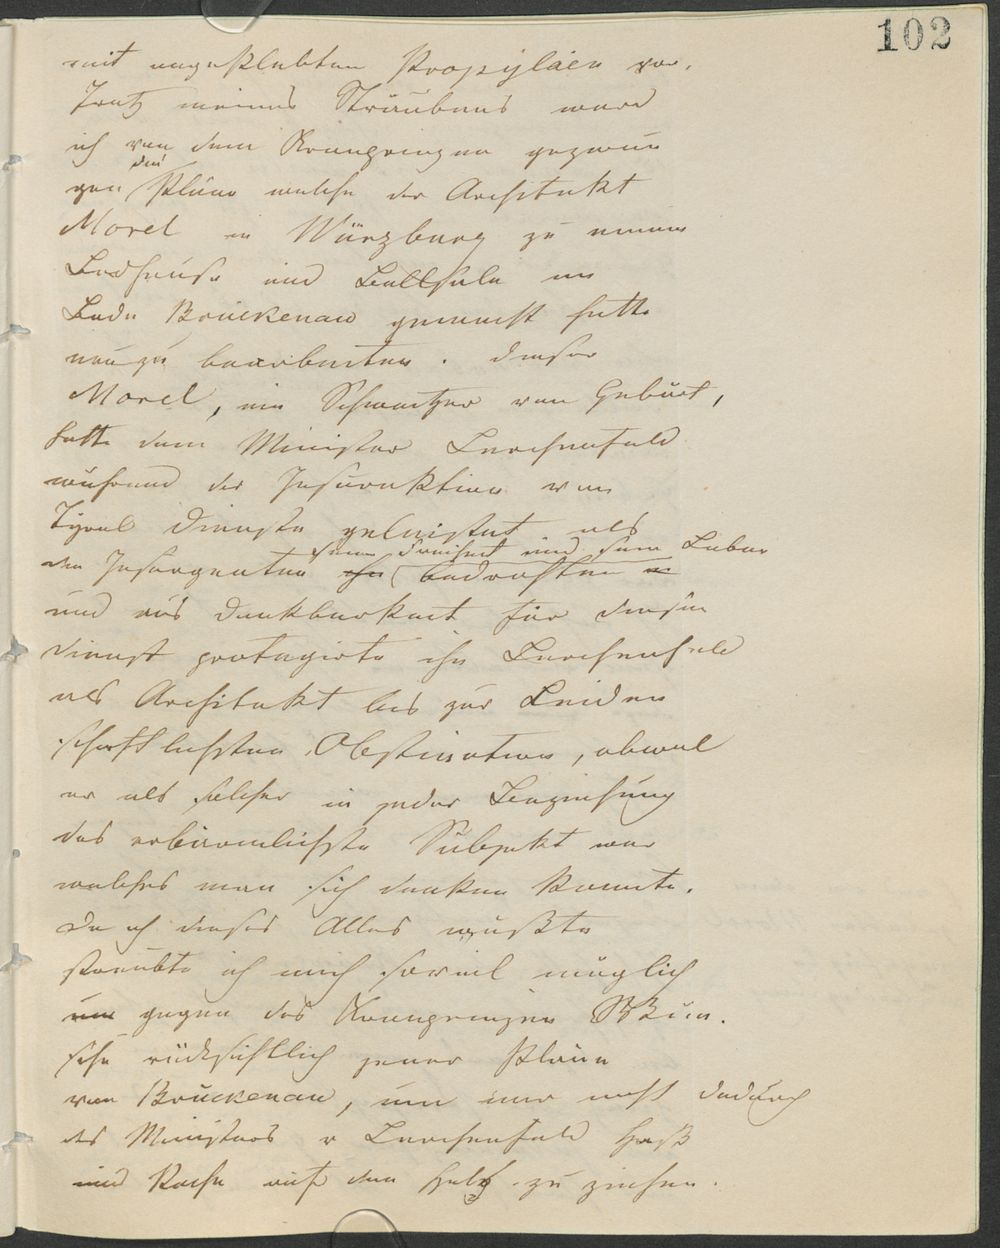 102
mit angeklebten Propyläen vor.
Trotz meines Sträubens ward
ich von dem Kronprinzen gezwun
gen die Pläne welche der Architekt
Morel in Würzburg zu einem
Badhause und Ballsale im
Bade Brückenau gemacht hatte
neu zu bearbeiten. Dieser
Morel, ein Schweitzer von Geburt,
hatte dem Minister Lerchenfeld
während der Insurektion von
Tyrol Dienste geleistet als
die Insurgenten seine Freiheit und sein Leben bedrohten
und aus Dankbarkeit für diesen
Dienst protegirte ihn Lerchenfeld
als Architekt bis zur Leiden
schaftlichsten Obstination, obwol
er als solcher in jeder Beziehung
das erbärmlichste Subjekt war
welches man sich denken konnte.
Da ich dieses Alles wußte
sträubte ich mich soviel möglich
gegen des Kronprinzen Wün.
sche rücksichtlich jener Pläne
von Brückenau, um mir nicht dadurch
des Ministers v Lerchenfeld Haß
und Rache auf den Hals zu ziehen.